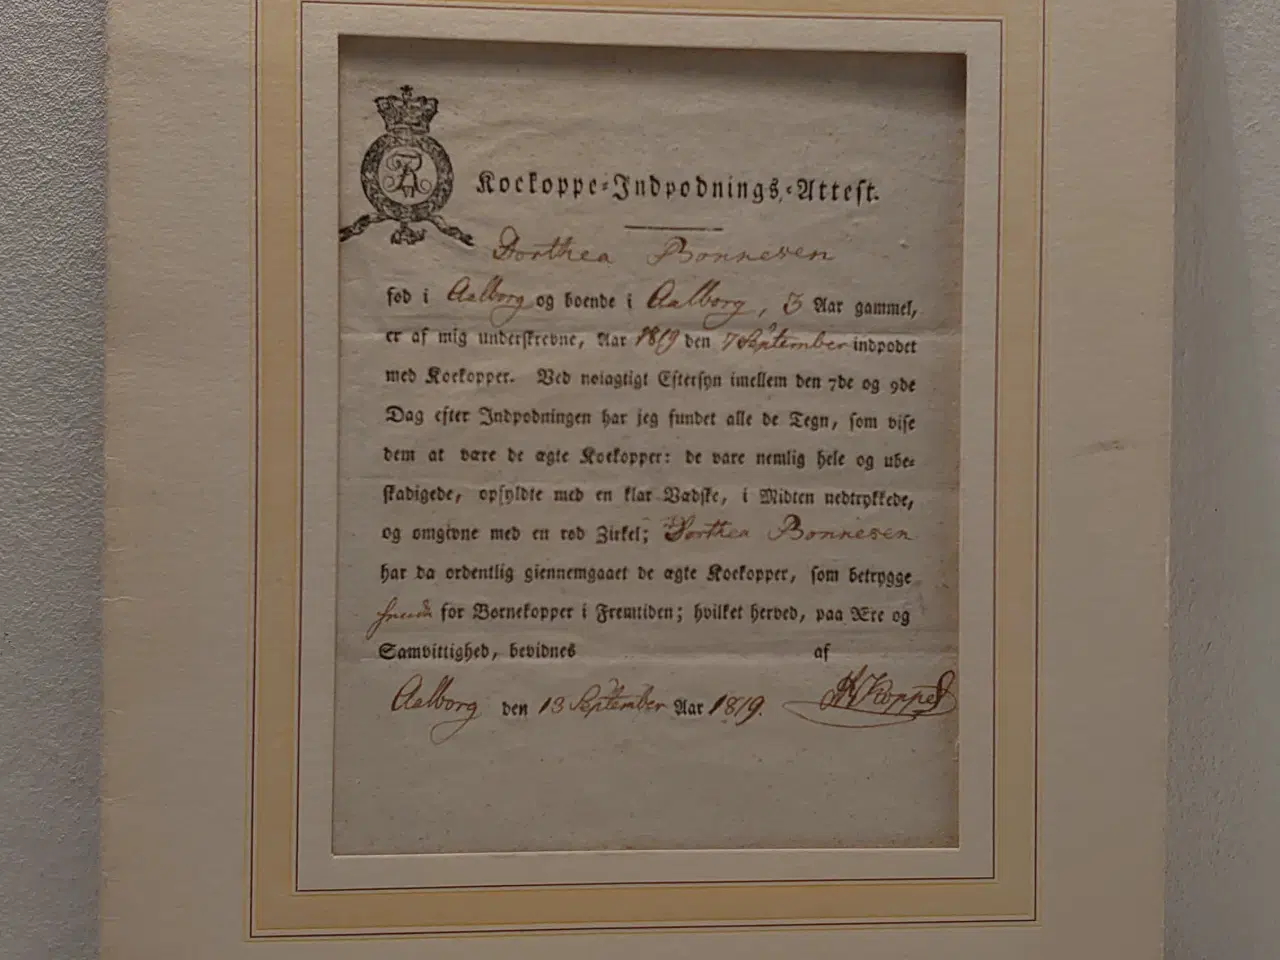 Koekoppe-Indpodnings-Attest.
Dorthea Bonnesen
fød i Aalborg og boende i Aalborg, 3 Aar gammel,
er af mig underskrevne, Aar 1819 den 7 September indpodet
med Koekopper. Ved nøiagtigt Eftersyn imellem den 7de og 9de
Dag efter Indpodningen har jeg fundet alle de Tegn, som vise
dem at være de ægte Koekopper: de vare nemlig hele og ube-
skadigede, opfyldte med en klar Vædske, i Midten nedtrykkede,
og omgivne med en rød Zirkel; Dorthea Bonnesen
har da ordentlig giennemgaaet de ægte Koekopper, som betrygge
for Børnekopper i Fremtiden; hvilket herved, paa Ære og
Samvittighed, bevidnes af
Aalborg den 13 September Aar 1819. Koppel